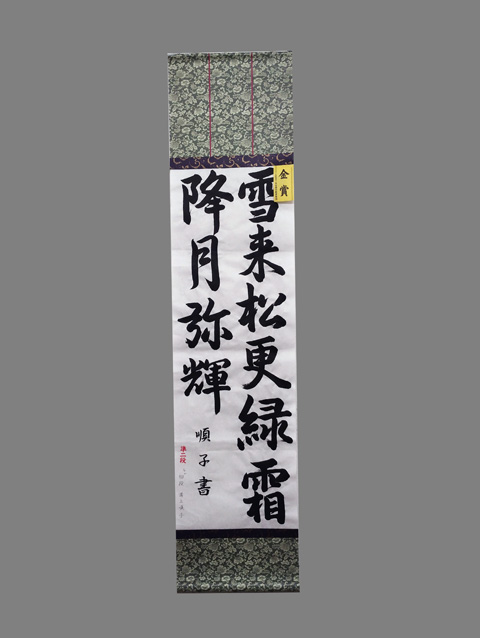 金賞
雪来松更緑霜
降月弥輝
順子書
準二段